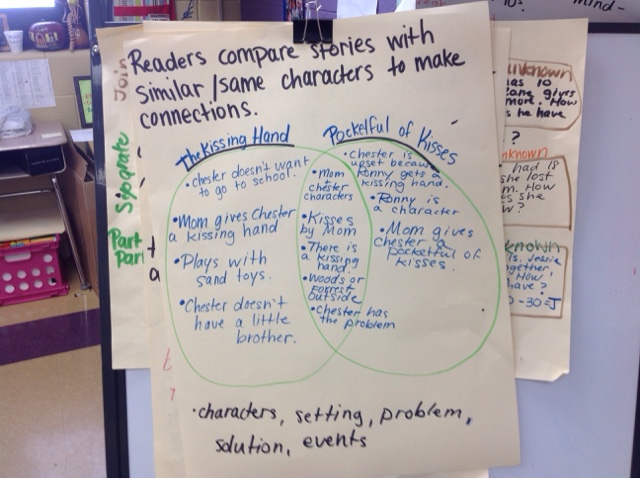 Readers compare stories with
similar/same characters to make
connections.
The Kissing Hand
• chester doesn't want
to go to school.
• Mom gives Chester
a kissing hand
• Plays with
sand toys.
• Chester doesn't
have a little
brother.
• Mom
chester
characters
• Kisses
by Mom
• There is
a kissing
hand.
• Woods or
Forrest
outside
• Chester has
the problem
Pocketful of Kisses
• Chester is
upset because
Ronny gets a
kissing hand.
• Ronny is
a character
• Mom gives
chester a
pocketful of
kisses.
• characters, setting, problem,
solution, events
Join
Separate
Part
Part
unknown
has 10
gives
more. How
s he have
?
nknown
had 18
she lost
m. How
es she
w?
known
Jessie
gether,
How
have?
-30=J
mind-